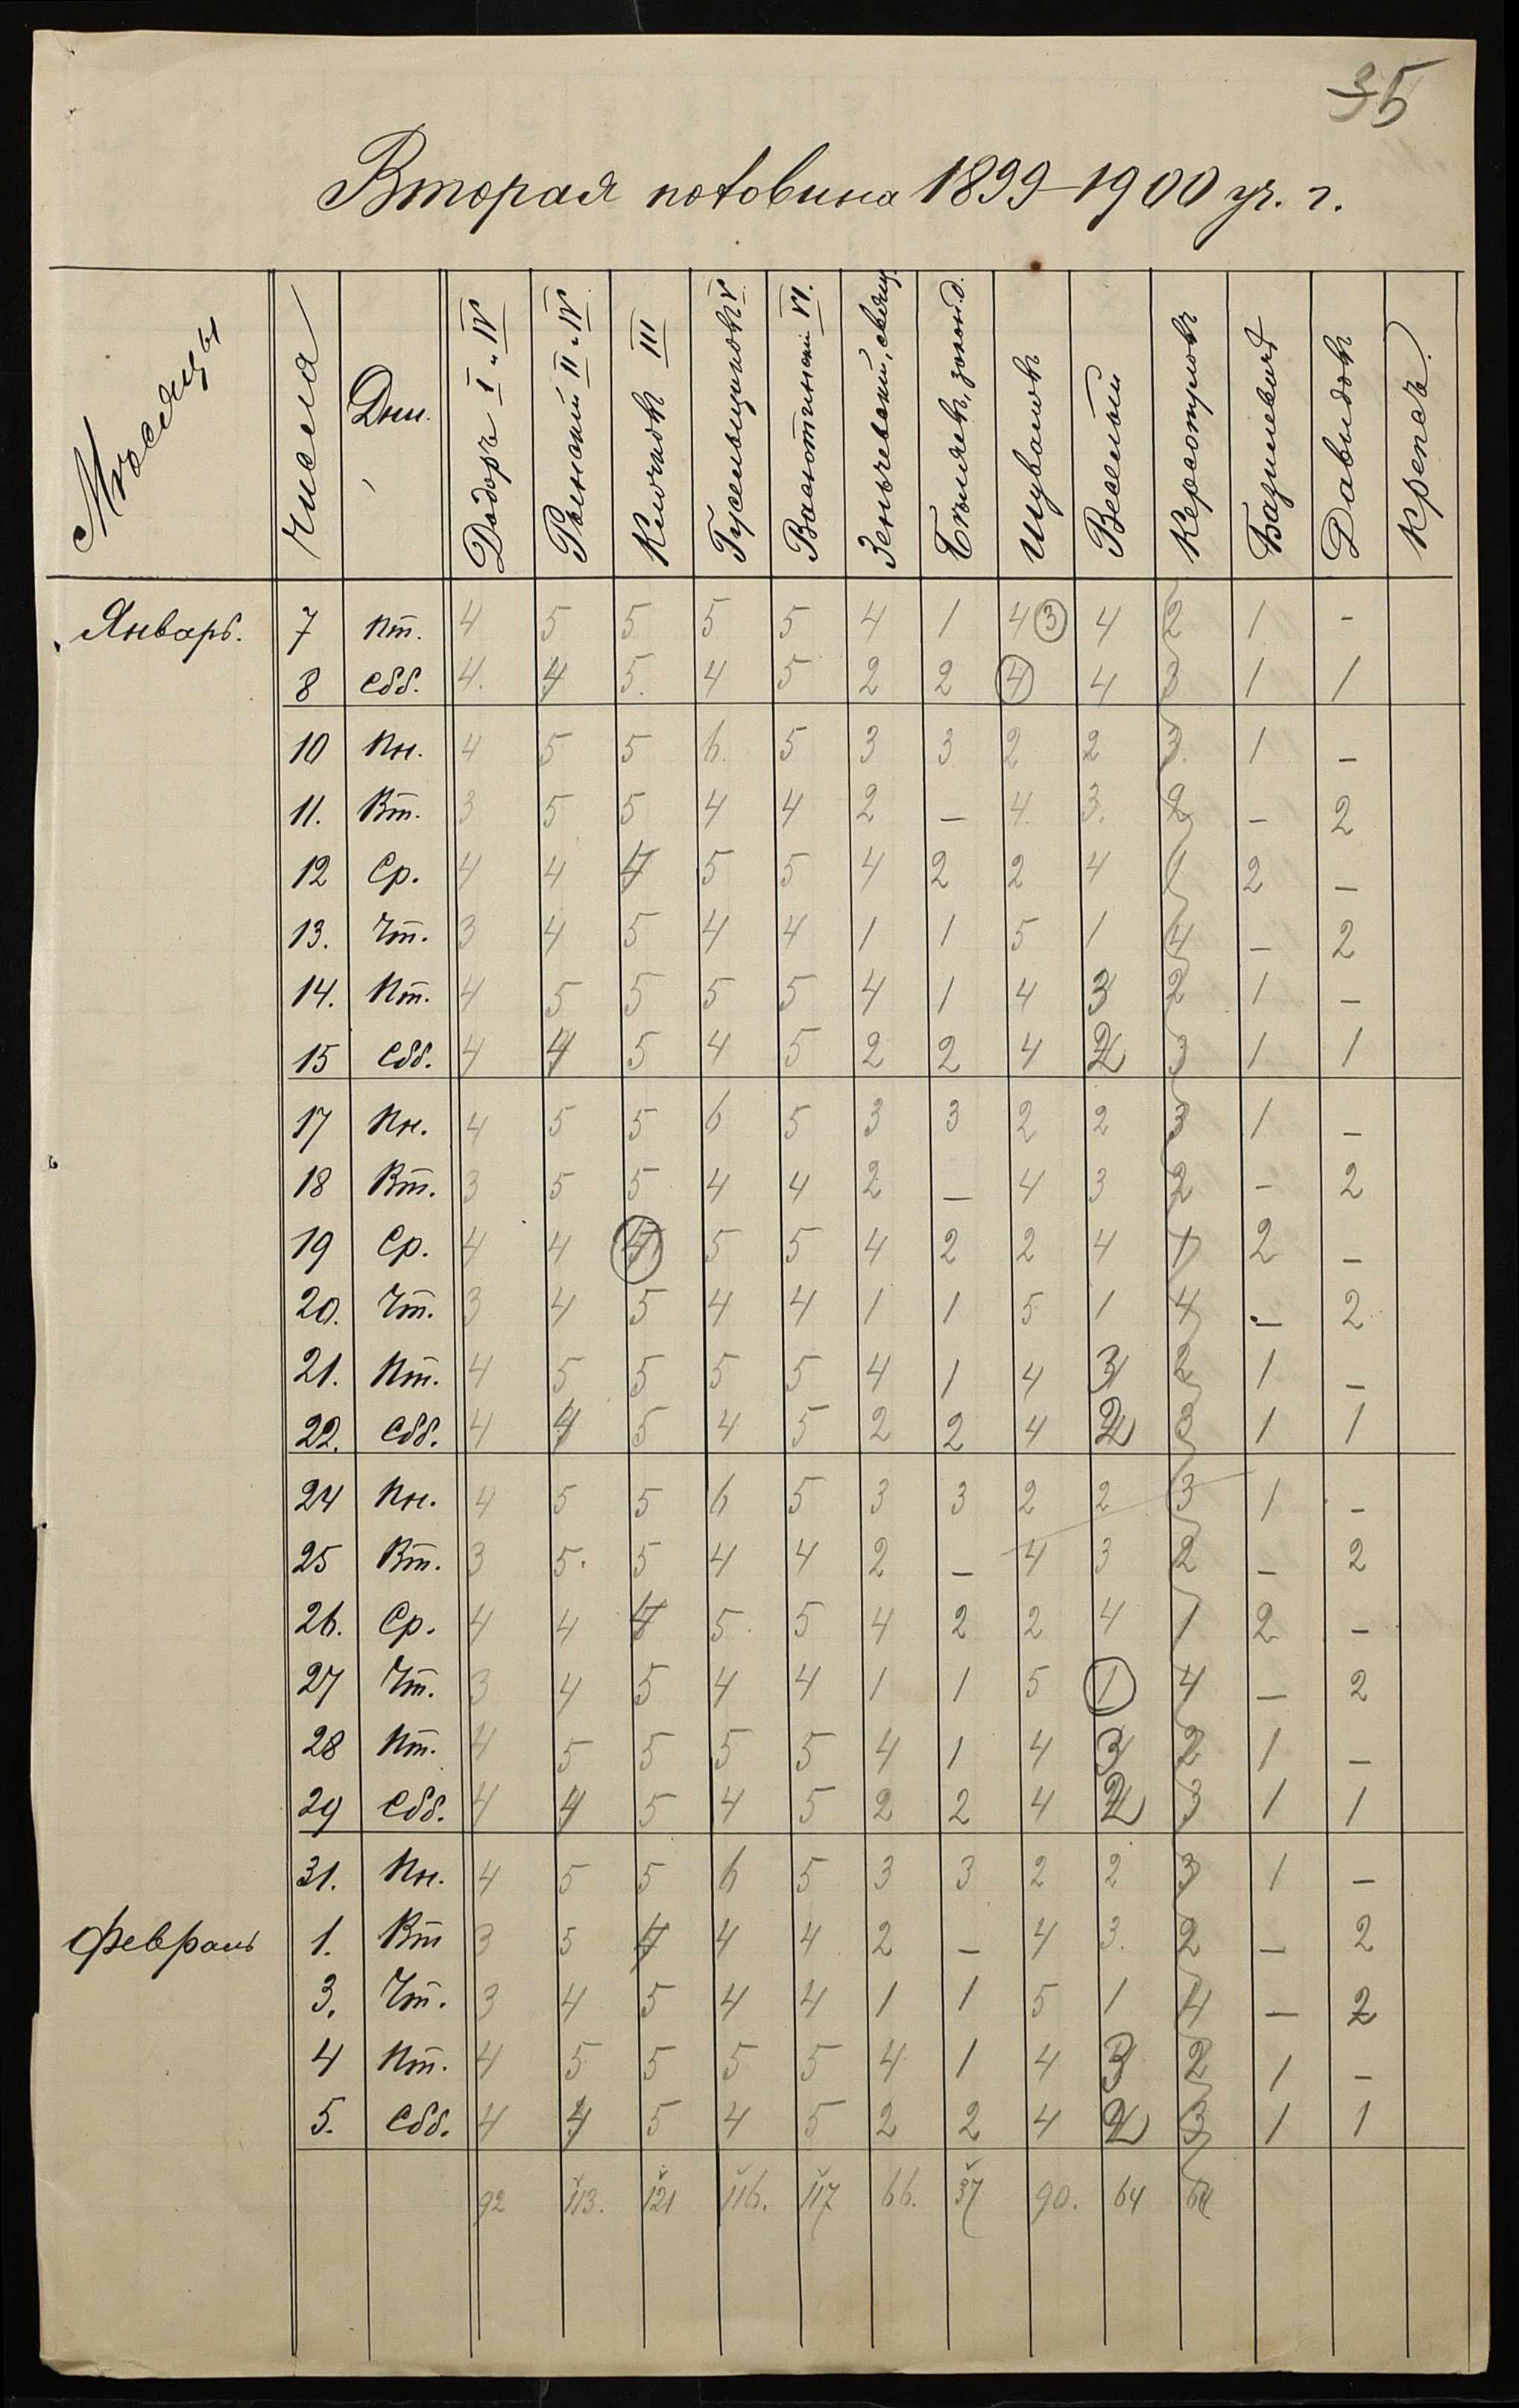 35
Вторая половина 1899–1900 уч. г.
Мѣсяцы Числа Дни. I и IV II и IV Клочковъ III V VI. Шуваловъ Веселый Давыдовъ Крепсъ.
Январь. 7 Пт. 4 5 5 5 5 4 1 4 3 4 2 1 -
8 Сбб. 4. 4 5. 4 5 2 2 4 4 3 1 1
10 Пн. 4 5 5 6. 5 3 3 2 2 3 1 –
11. Вт. 3 5 5 4 4 2 – 4. 3. 2 – 2
12 Ср. 4 4 4 5 5 4 2 2 4 1 2 –
13. Чт. 3 4 5 4 4 1 1 5 1 4 – 2
14. Пт. 4 5 5 5 5 4 1 4 3 2 1 –
15 Сбб. 4 4 5 4 5 2 2 4 2 3 1 1
17 Пн. 4 5 5 6 5 3 3 2 2 3 1 –
18 Вт. 3 5 5 4 4 2 – 4 3 2 - 2
19 Ср. 4 4 4 5 5 4 2 2 4 1 2 –
20. Чт. 3 4 5 4 4 1 1 5 1 4 – 2
21. Пт. 4 5 5 5 5 4 1 4 3 2 1 –
22. Сбб. 4 4 5 4 5 2 2 4 2 3 1 1
24 Пн. 4 5 5 6 5 3 3 2 2 3 1 –
25 Вт. 3 5. 5 4 4 2 – 4 3 2 – 2
26. Ср. 4 4 4 5 5 4 2 2 4 1 2 –
27 Чт. 3 4 5 4 4 1 1 5 1 4 – 2
28 Пт. 4 5 5 5 5 4 1 4 3 2 1 –
29 Сбб. 4 4 5 4 5 2 2 4 2 3 1 1
31. Пн. 4 5 5 6 5 3 3 2 2 3 1 –
Февраль 1. Вт 3 5 4 4 4 2 – 4 3. 2 – 2
3. Чт. 3 4 5 4 4 1 1 5 1 4 – 2
4 Пт. 4 5 5 5 5 4 1 4 3 2 1 –
5. Сбб. 4 4 5 4 5 2 2 4 2 3 1 1
92 113. 121 116. 117 66. 37 90. 64